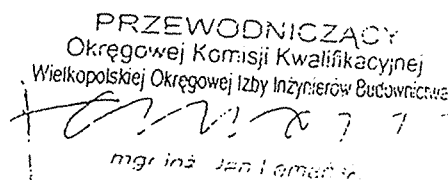 PRZEWODNICZĄCY
Okręgowej Komisji Kwalifikacyjnej
Wielkopolskiej Okręgowej Izby Inżynierów Budownictwa
mgr inż. Jan